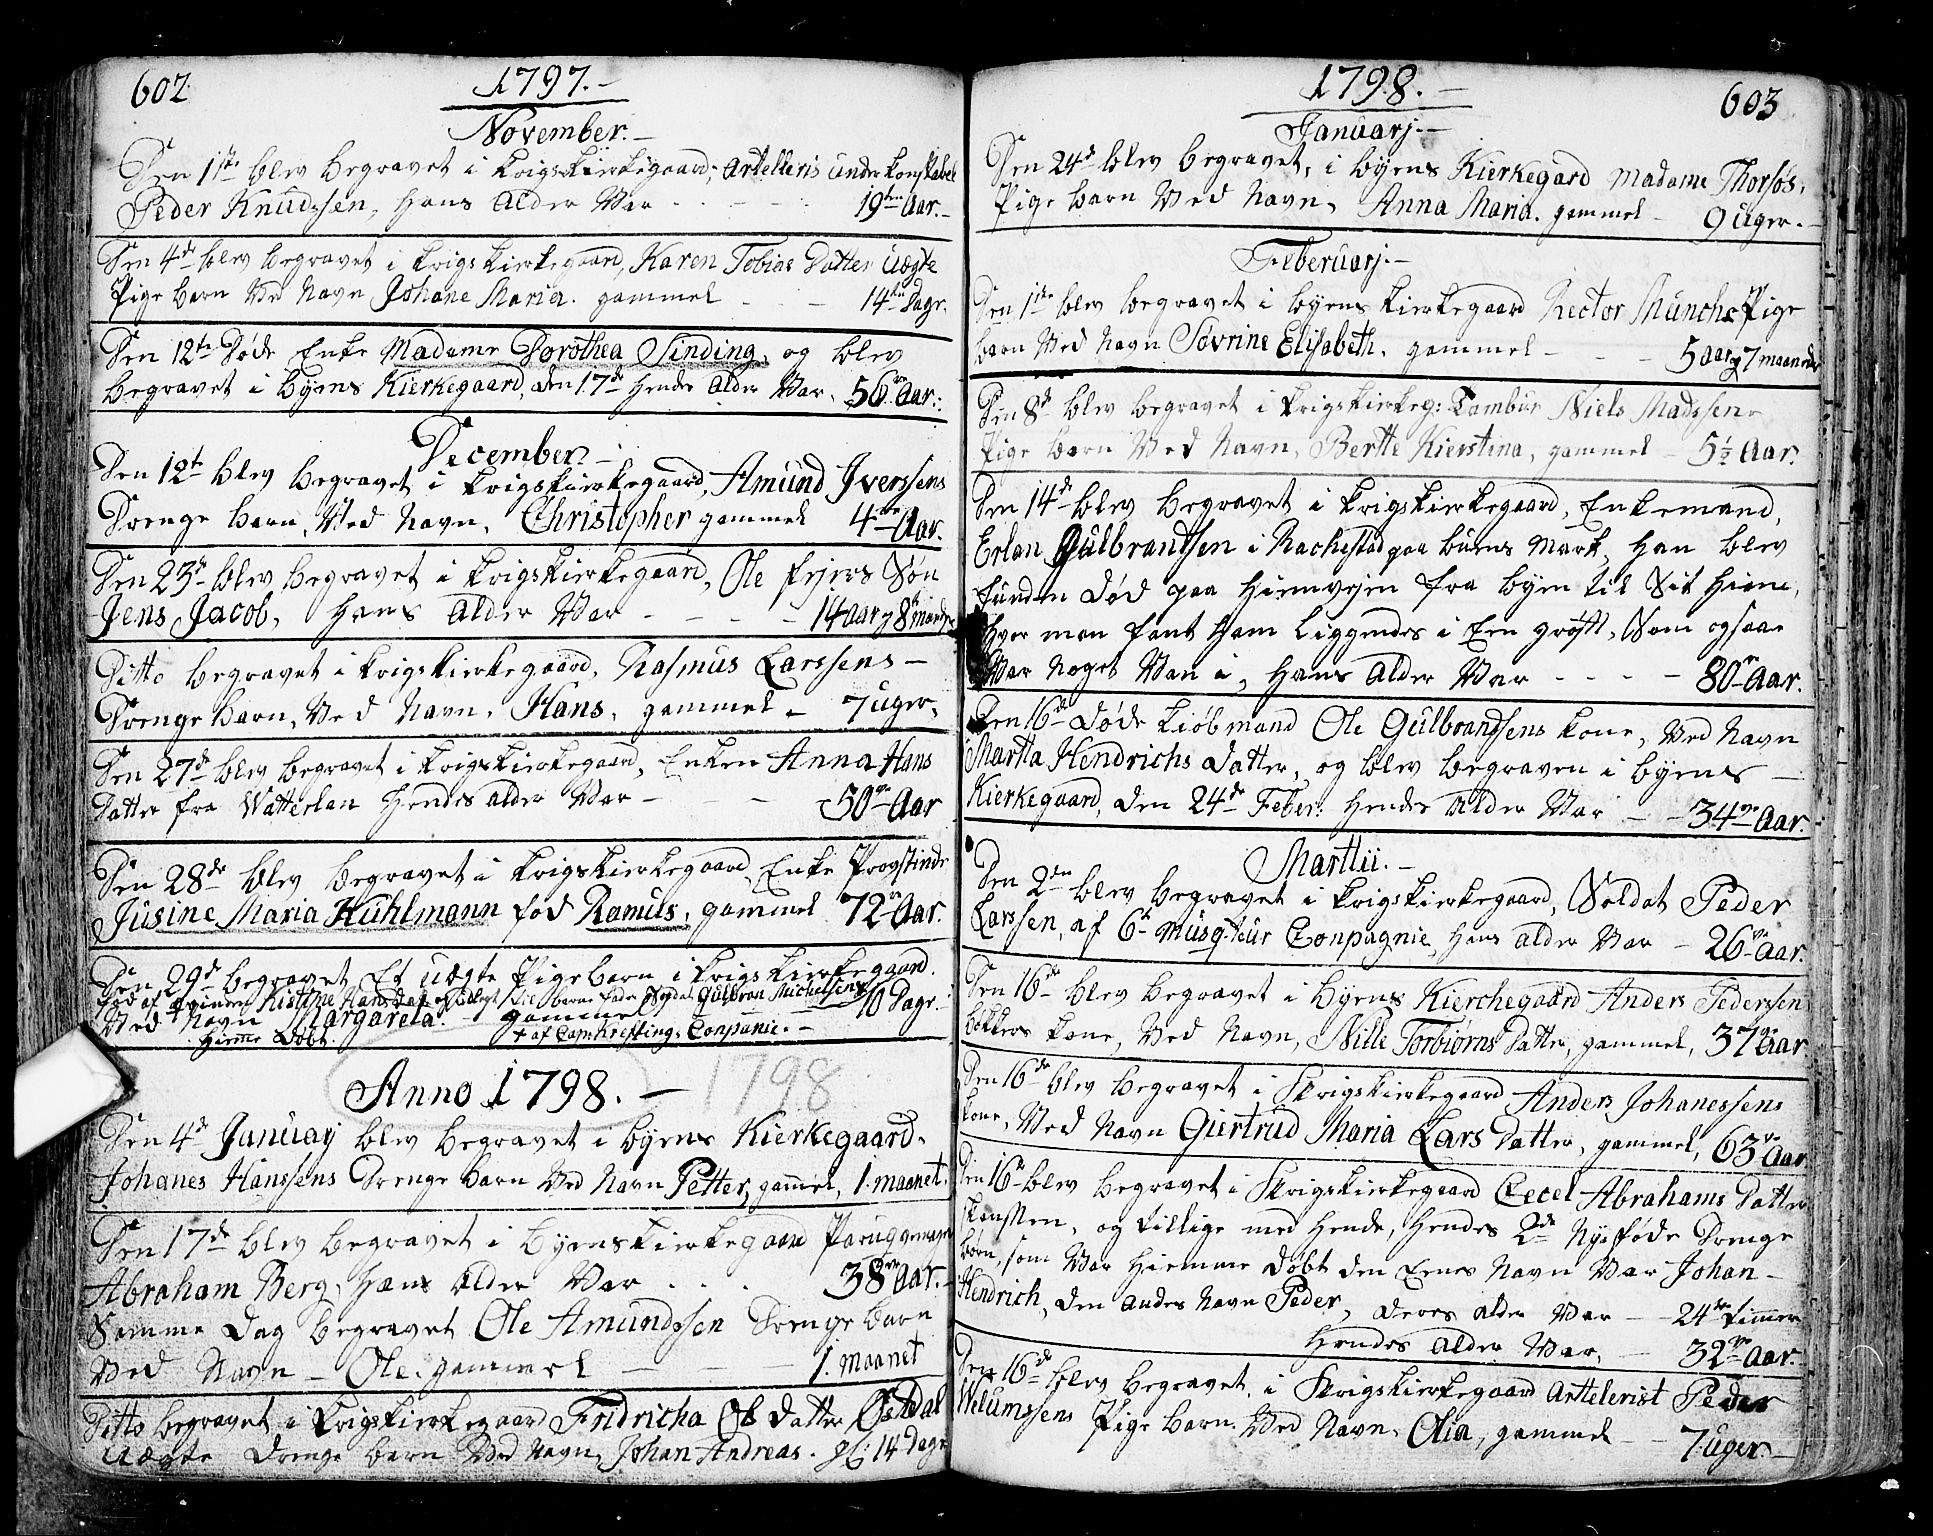 602
1797.-
November.-
Den 1ste blev begravet i krigskirkegaard, Artelleris underkonstabel
Peder Knudssen, hans alder var - - - - 19ten Aar.-
Den 4de blev begravet i krigskirkegaard, Karen Tobias Datter Uægte
Pige barn ved navn Johane Maria. gammel - - - 14ten Dage.
Den 12te Døde Enke Madame Dorothea Sinding, og blev
begravet i byens Kierkegaard, den 17de hendes alder var, 56re Aar.
December.-
Den 12te blev begravet i krigskirkegaard, Amund Iverssens
Drenge barn, ved navn, Christopher gammel 4re Aar.
Den 23de blev begravet i krigskirkegaard, Ole Søn
Jens Jacob, hans alder var - - - - 14 aar og 8te maaneder
Ditto begravet i krigskirkegaard, Rasmus Larssens -
Drenge barn, ved navn, Hans, gammel - 7 uger,
Den 27de blev begravet i krigskirkegaard, Enken Anna Hans
Datter fra Watterlan hendes alder var - - 50re Aar
Den 28de blev begravet i krigskirkegaard, Enke Provstinde
Jusine Maria Kuhlmann fød Ramus, gammel 72re Aar.
Den 29de begravet Et uægte Pige barn i krigskirkegaard.
fød af qvinden Kistine Hansdat og udlagt til barne fader Soldat Gulbran Michelsen +
Ved Navn Margareta. - gammel - 10 Dage.
hieme døbt. + af Cap: Krefting: Conpanie.-
Anno 1798.-
1798
Den 4de Januarj blev begravet i byens Kierkegaard,
Johanes Hanssens Drenge barn ved navn Petter, gamel, 1. maanet.
Den 17de blev begravet i byens kierkegaard
Abraham Berg, hans alder var - - - 38re Aar.-
Samme Dag begravet Ole Amundssen Drenge barn
Ved Navn - Ole. gammel - - - 1. maanet
Ditto begravet i krigskirkegaard Fridricha Ols datter Østdal
uægte Drenge barn ved navn, Johan Andreas. gl: 14 Dage
1798.-
603
Januarj.-
Den 24de blev begravet, i byens Kierkegard Madame Thorsøs,
Pige barn ved navn, Anna Maria. gammel - 9 uger.-
Feberuarj.-
Den 1ste blev begravet i byens kierkegaard Rector Munchs Pige
barn ved navn Sovrine Elisabeth. gammel - - - 5 aar og 7 maaneder
Den 8de blev begravet i krigskirkeg: Tambur Niels Madssens
Pige barn ved navn, Bertte Kierstina, gammel - 5½ Aar.
Den 14de blev begravet i krigskirkegaard, Enkemand,
Erlan Gulbrantsen i Rachestad paa buens mark, han blev
funden død paa hiemvejen fra byen til Sit hiem,
hvor man fant ham liggendes i Een grøft, som ogsaa
var noget van i, hans alder var - - - - 80re Aar.
Den 16de døde kiøbmand Ole Gulbrandsens kone, ved navn
Martta Hendrichs datter, og blev begraven i byens -
Kierkegaard, den 24de Feber: hendes alder var - - 34re Aar.
Marttii.-
Den 2den blev begravet i krigskirkegaard, Soldat Peder
Larssen, af 6te musqteur Conpagnie, hans alder var - 26re Aar.
Den 16de blev begravet i byens Kierchegaard Anders Pederssen
bakkers kone, ved navn, Nille Torbiørns Datter, gammel, 37re Aar
Den 16de blev begravet i krigskirkegaard Anders Johanessens
kone, ved navn Giertrud Maria Lars datter, gammel, 63re Aar
Den 16de blev begravet i krigskirkegaard Cecel Abrahams Datter
og tillige med hende, hendes 2de nyeføde Drenge
børn, som var hiemme døbt den Eenes navn var Johan -
Hendrich, den andes navn Peder, deres alder var - 24re timmer
hendes alder var, - 32re Aar.
Den 16de blev begravet, i krigskirkegaard Arttelerist Peder
Welumssens Pige barn, ved navn, Olia, gammel - 7. uger.-